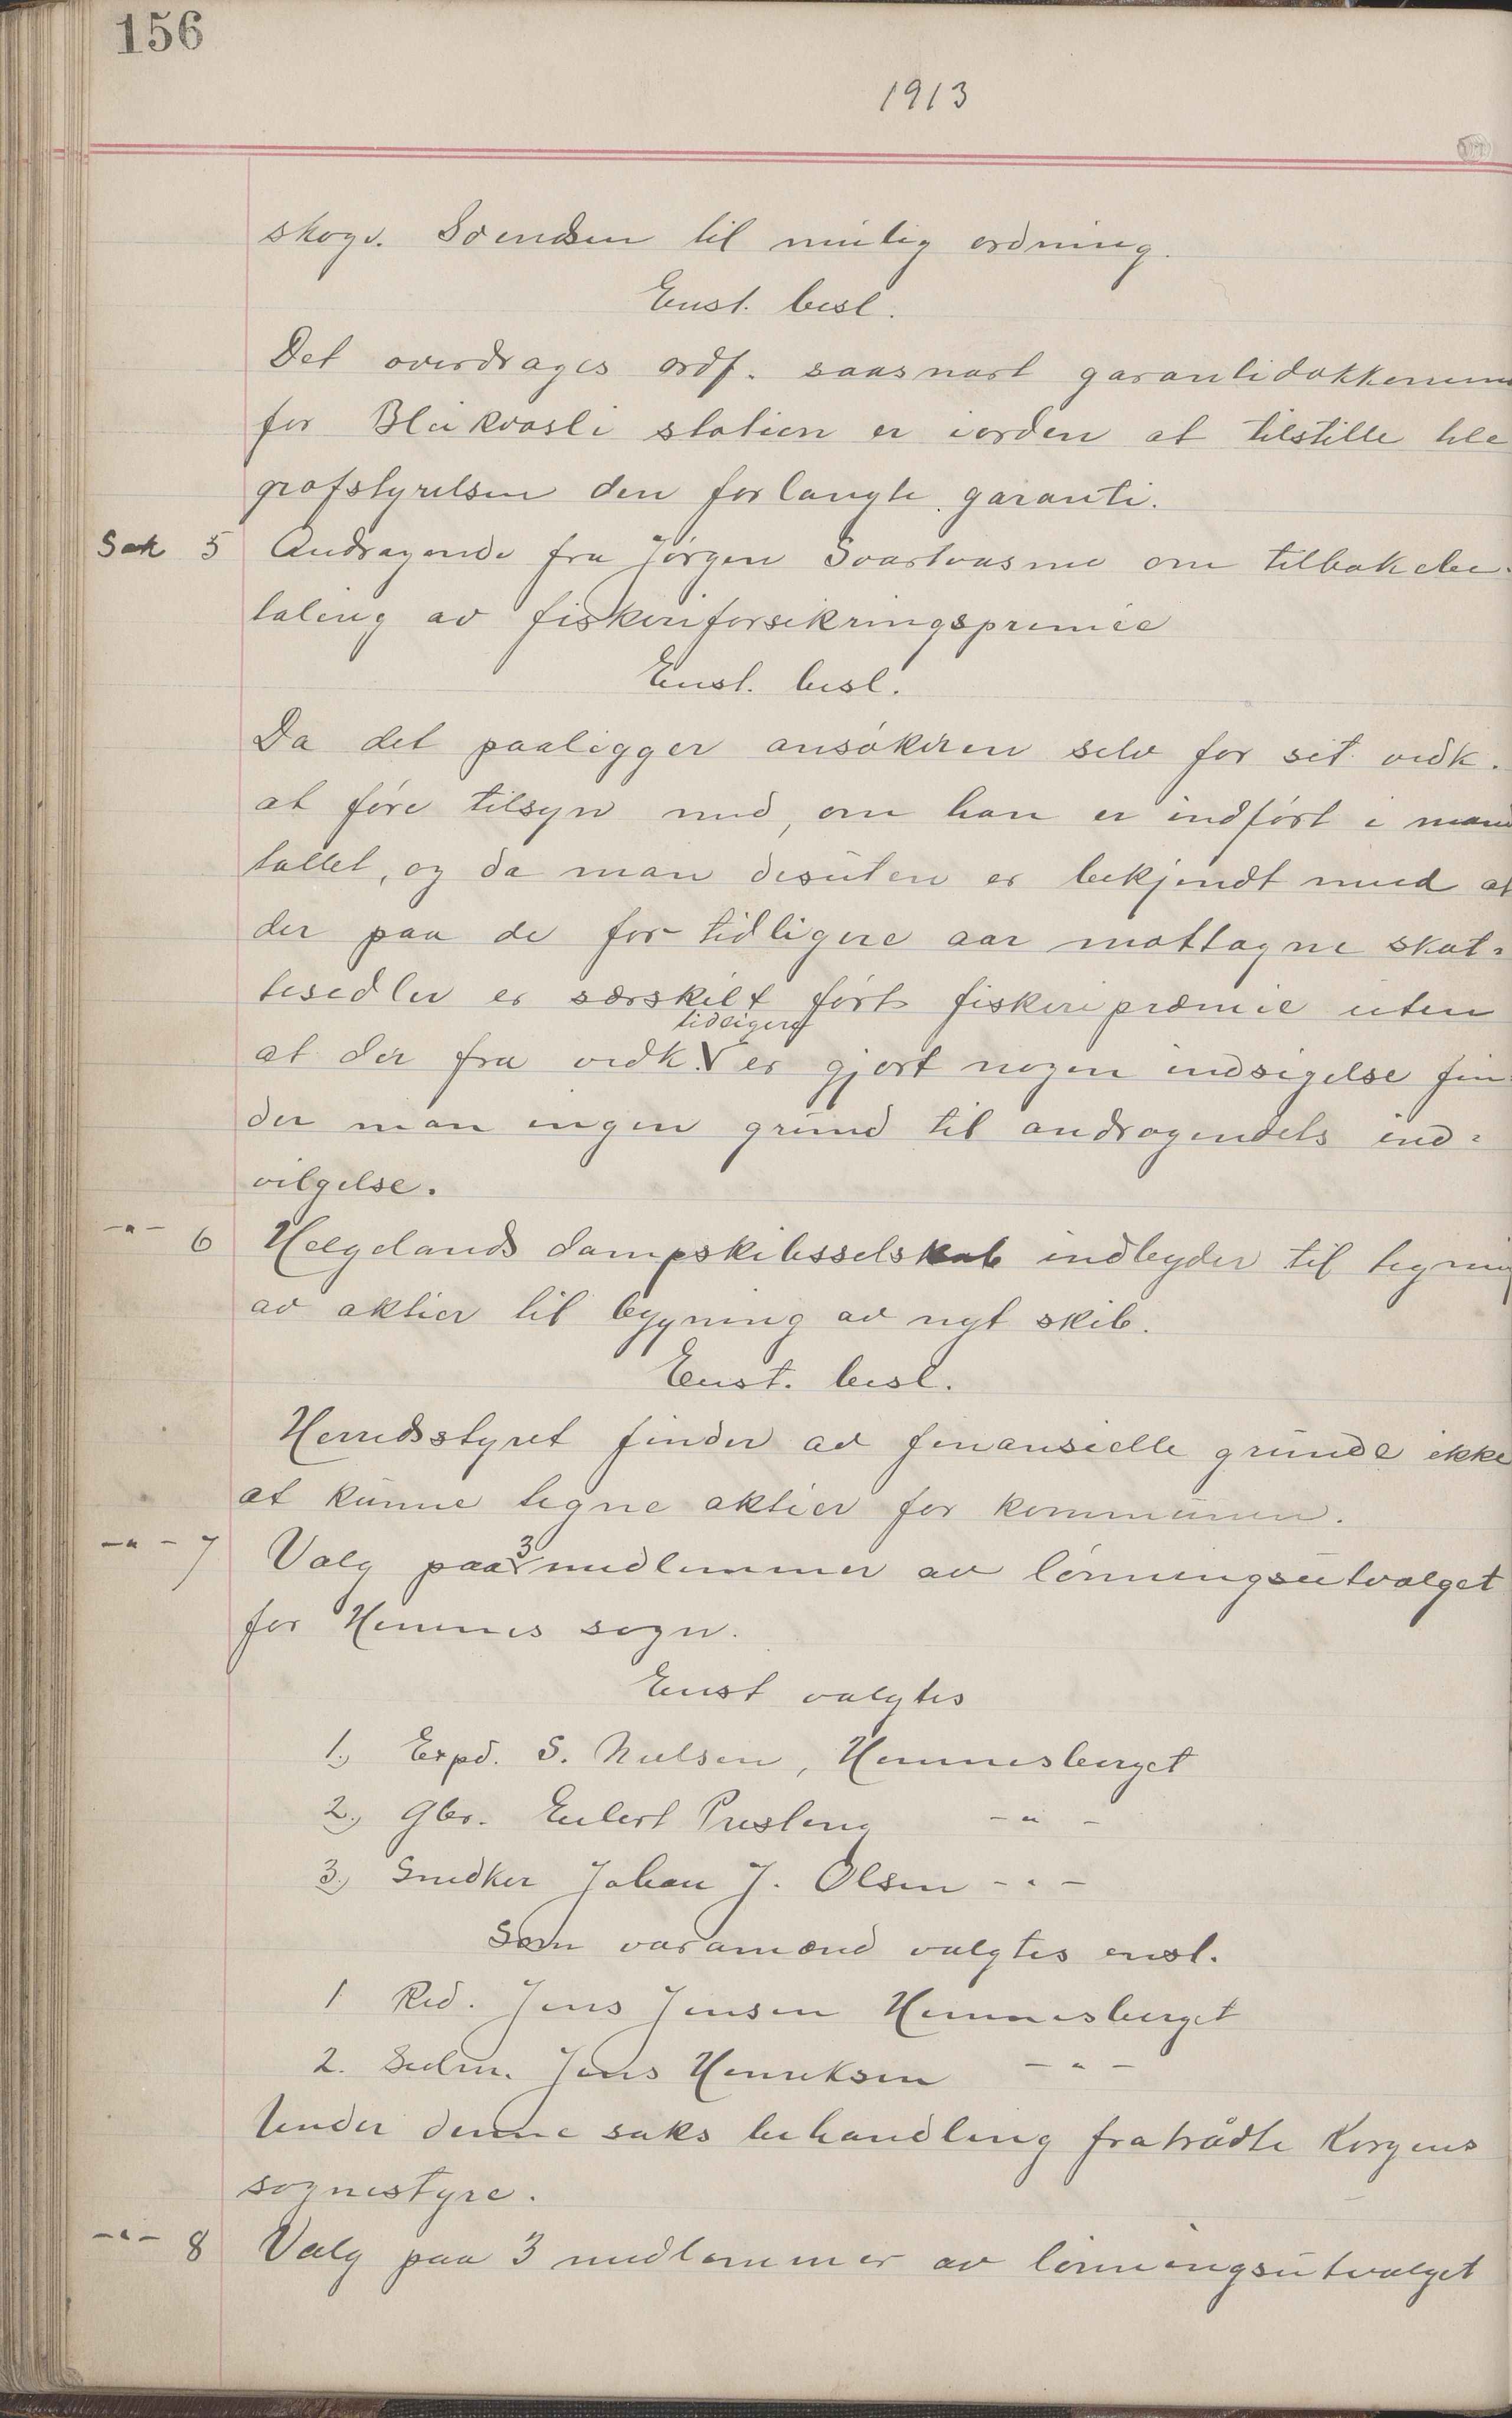 156
1913
skogv. Svendsen til mulig ordning.
Enst. besl.
Det overdrages ordf. saasnart garantidokkumen
for Bleikvasli station er iorden at tilstille tele
grafstyrelsen den forlangte garanti.
Sak 5 Andragende fra Jørgen Svartvasmo om tilbakebe-
taling av fiskeriforsikringspremie
Enst. besl.
Da det paaligger ansøkeren selv for sit vedk.
at føre tilsyn med, om han er indført i mand
tallet, og da man desuten er bekjendt med at
der paa de for tidligere aar mottagne skat-
tesedler er særskilt ført fiskeripræmie uten
tidligere
at der fra vedk. V er gjort nogen indsigelse fin-
der man ingen grund til andragendets ind-
vilgelse.
-"- 6 Helgelands dampskibsselskab indbyder til tegning
av aktier til bygning av nyt skib.
Enst. besl.
Herredsstyret finder av finansielle grunde ikke
at kunne tegne aktier for kommunen.
-"- 7 Valg paa 3 medlemmer av lønningsutvalget
for Hemnes sogn.
Enst valgtes
1.) Expd. S. Nielsen, Hemnesberget
2.) Gbr. Eilert Presteng -"-
3.) Snedker Johan J. Olsen -"-
Som varamænd valgtes enst.
1 Red. Jens Jensen Hemnesberget
2. Jens Henriksen -"-
Under denne saks behandling fratrådte Korgens
sognestyre.
-"- 8 Valg paa 3 medlemmer av lønningsutvalget